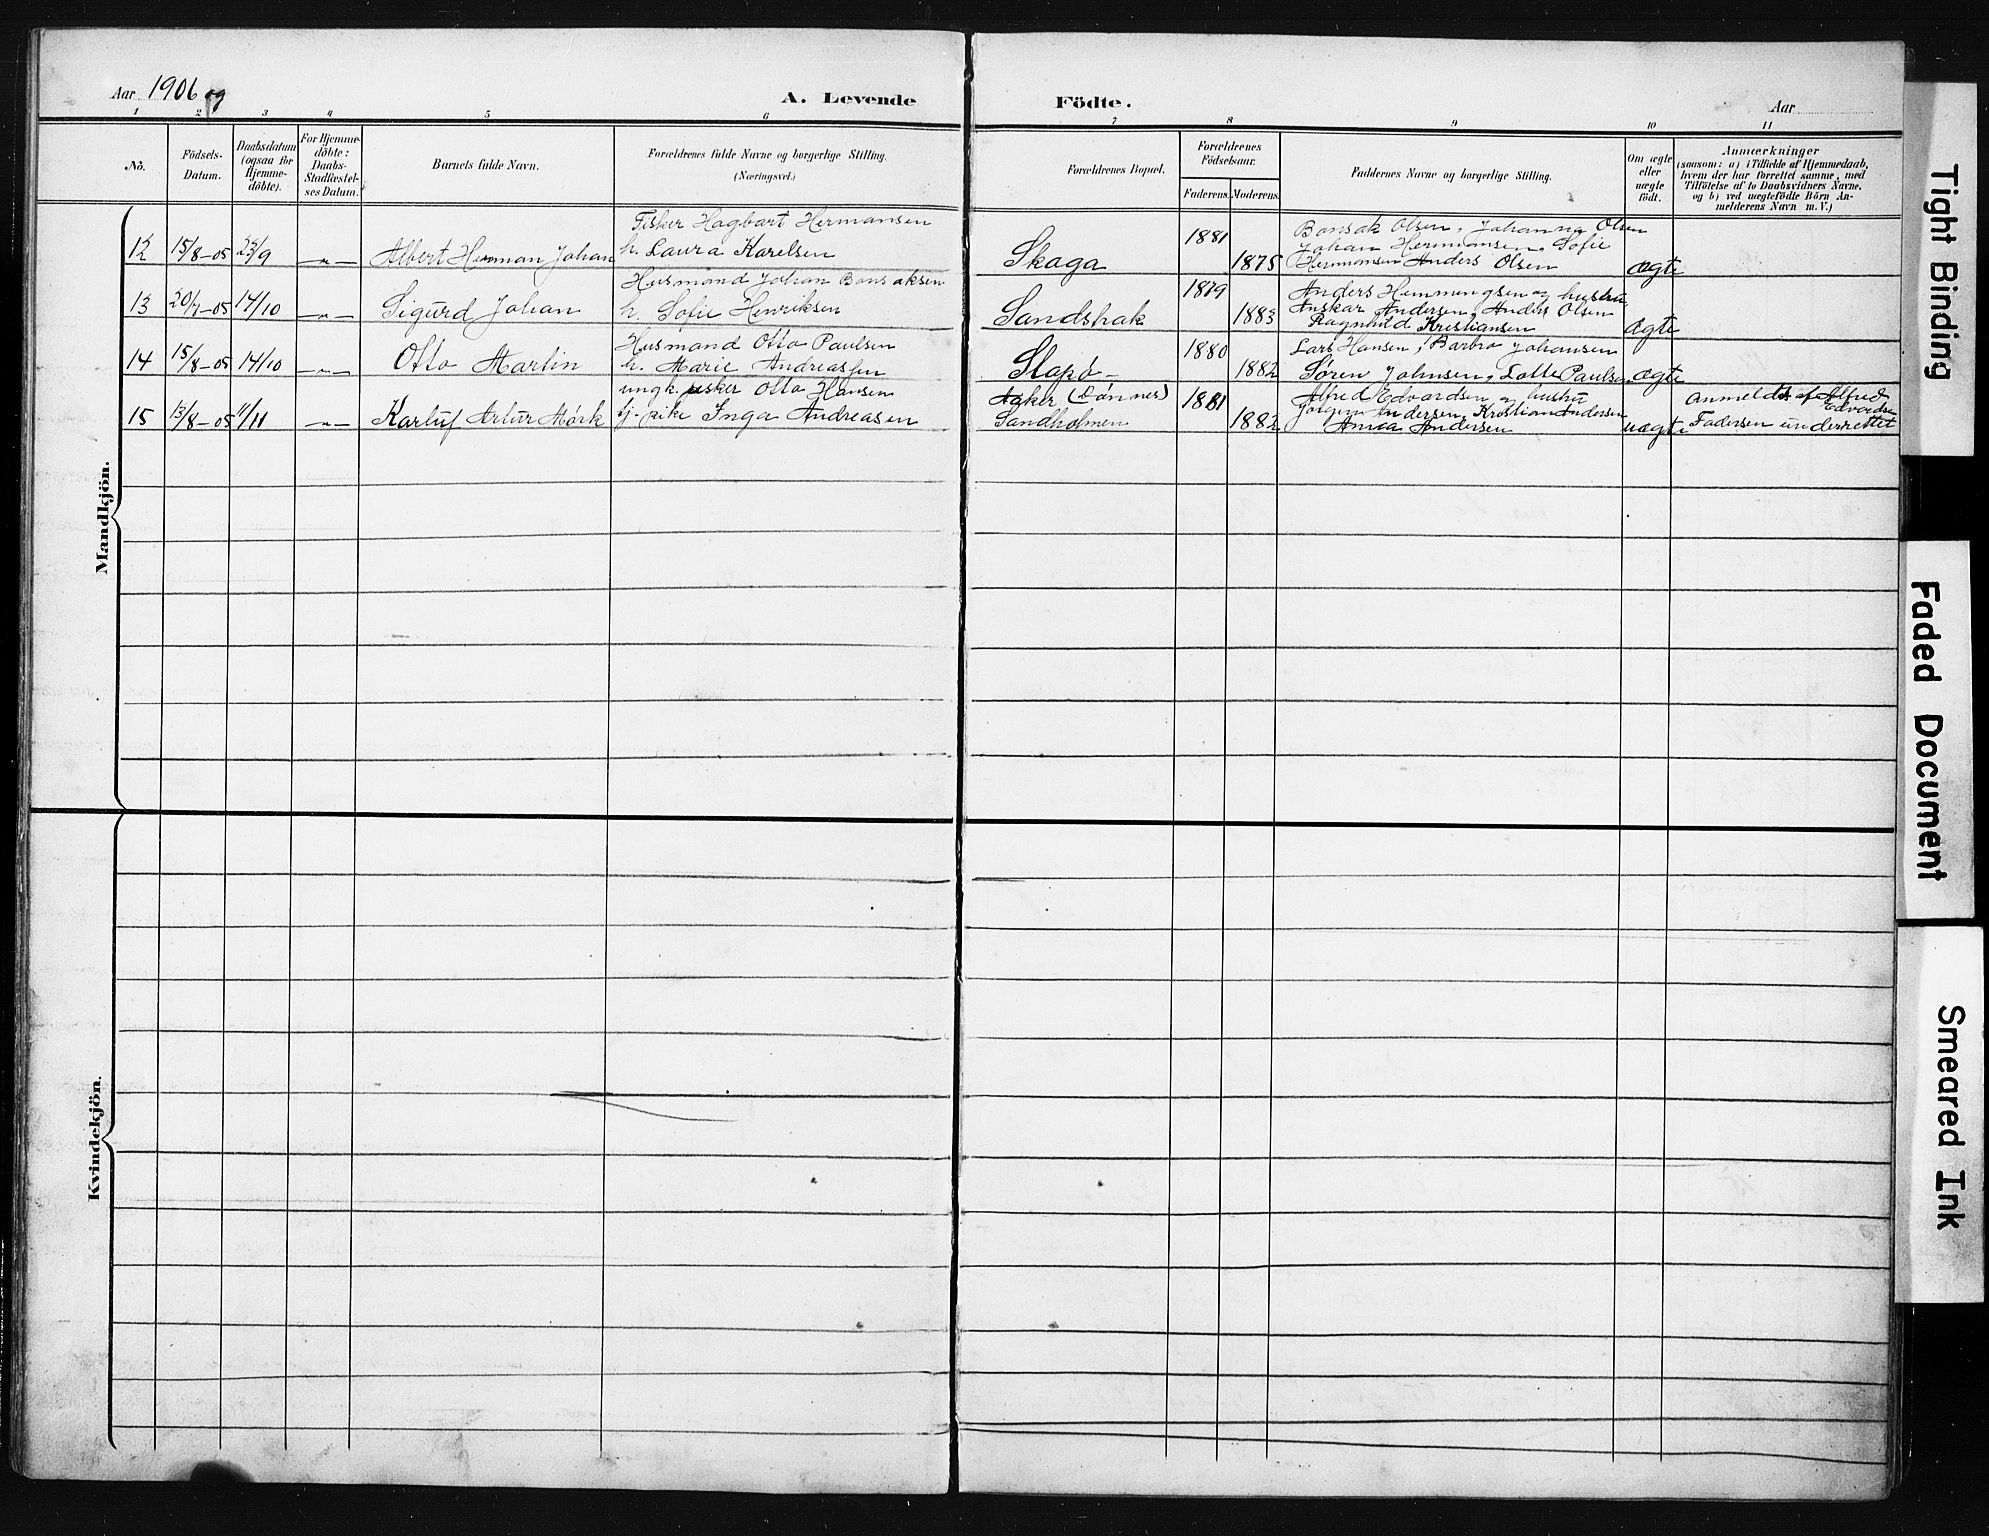 Aar 1906 og
A. Levende Födte.
Aar
1 2 3 4 5 6 7 8 9 10 11
No.
Födsels-Datum.
Daabsdatum (ogsaa for Hjemme-döbte).
For Hjemme-döbte: Daabs-Stadfæstel-ses Datum.
Barnets fulde Navn.
Forældrenes fulde Navne og borgerlige Stilling. (Næringsvei.)
Forældrenes Bopæl.
Forældrenes Födselsaar.
Faderens. Moderens.
Faddernes Navne og borgerlige Stilling.
Om ægte eller uægte födt.
Anmærkninger
(saasom: a) i Tilfælde af Hjemmedaab,
hvem der har forrettet samme, med
Tilföielse af to Daabsvidners Navne.
og b) ved uægtefödte Börn An-
melderens Navn m. V.)
Mandkjön.
Fisker Hagbart Hermansen
12 15/8-05 /9 -"- Albert Herman Johan h. Laura Karelsen
Skaga 1881 1875
Bonsak Olsen, Johanna Olsen
Johan Hermansen, Sofie
Hermansen Anders Olsen
ægte
Husmand Johan Bonsaksen
13 20/7-05 14/10 -"- Sigurd Johan h. Sofie Henriksen
Sandshak 1879 1883
Anders Hemmingsen og hustru
Anskar Andersen, Anders Olsen
Ragnhild Kristiansen
ægte
Husmand Otto Paulsen
14 15/8-05 14/10 -"- Otto Martin h. Marie Andreassen
Slapø- 1880 1882
Lars Hansen, Barbro Johansen
Søren Johnsen, Lotte Paulsen
ægte
ungk. fisker Otto Hansen
15 13/8-05 11/11 -"- Karluf Artur Mörk tj. pike Inga Andreasen
Aaker (Dønnes)
Sandholmen
1881 1882
Alfred Edvardsen og hustru
Jørgen Andersen, Kristian Andersen
Anna Andersen
uægte
anmeldt af Alfred
Edvardsen
Faderen underrettet
Kvindekjön.
Tight Binding
Faded Document
Smeared Ink